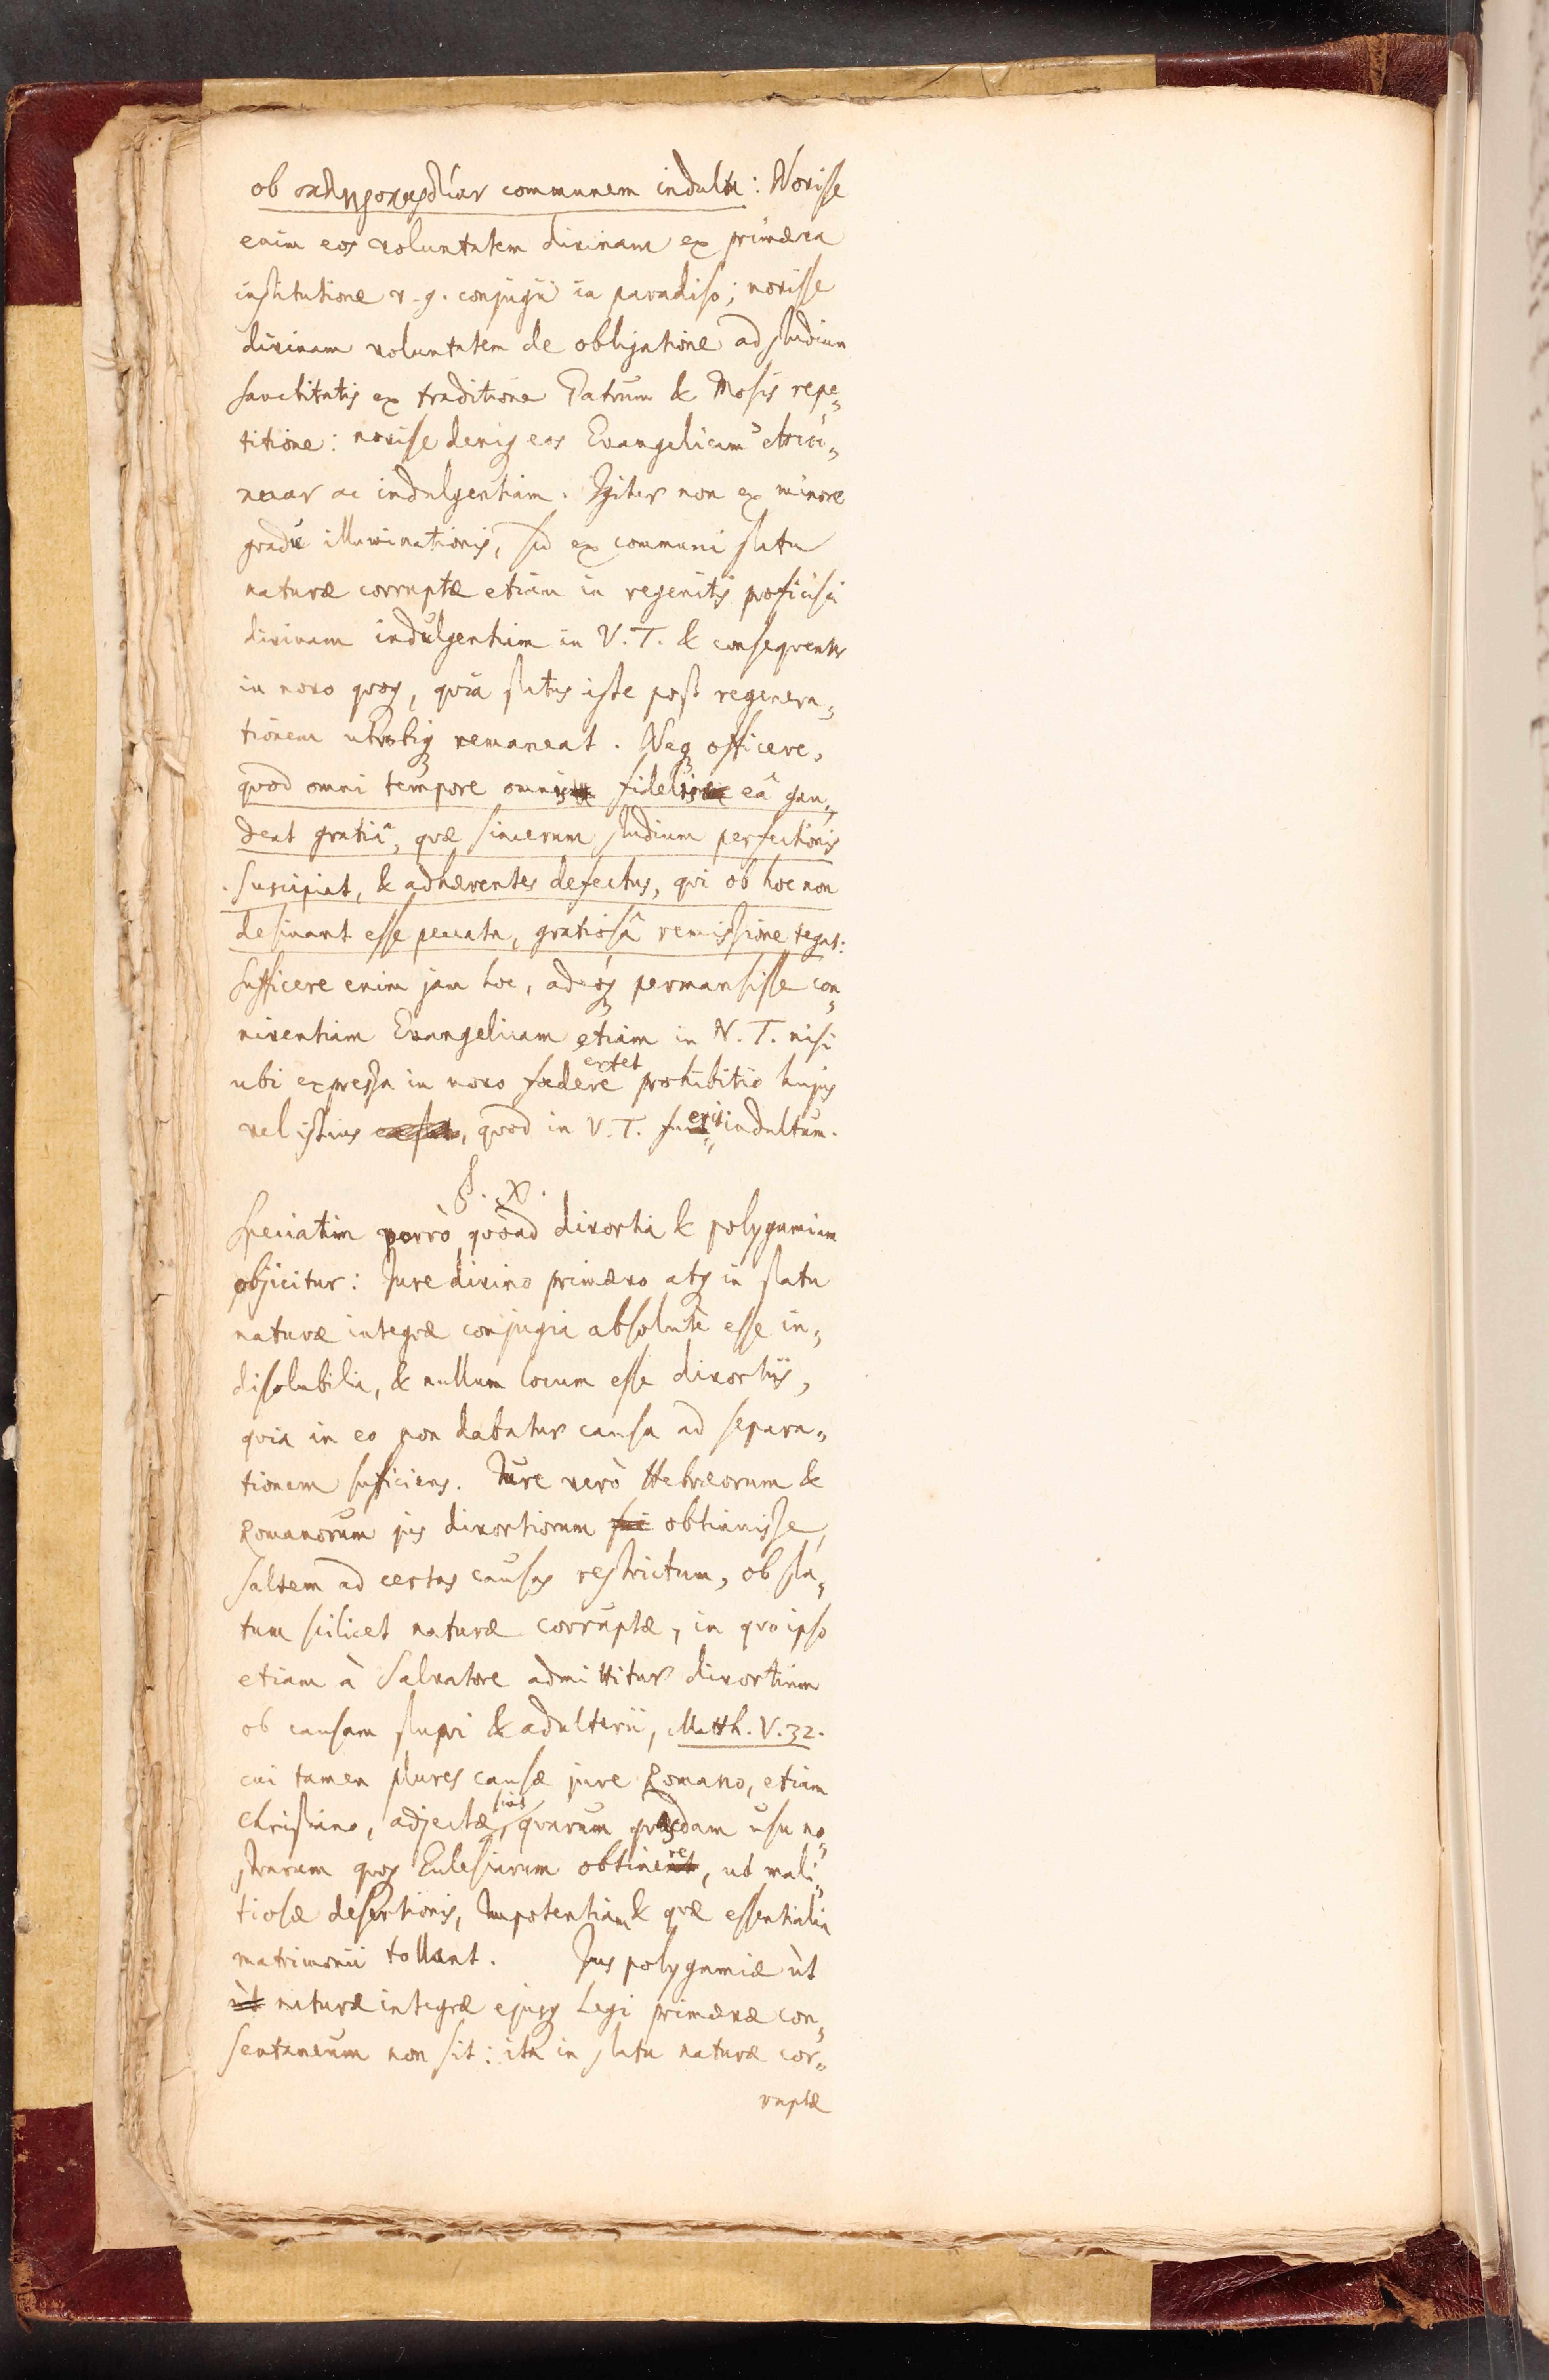 ob σκληροκαρδίαν communem indulta: Novisse
enim eos voluntatem divinam ex primæva
institutione v. g. conjugii in paradiso; novisse
divinam voluntatem de obligatione ad studium
sanctitatis ex traditione Patrum & Mosis repe„
titione: novisse deniq; eos Evangelicam ἐπιεί„
κειαν ac indulgentiam. Igitur non ex minore
gradu illuminationis, sed ex communi statu
naturæ corruptæ etiam in regenitis proficisci
divinam indulgentiam in V. T. & consequenter
in novo quoq;, quia status iste post regenera„
tionem utrobiq; remaneat. Neq; officere,
quod omni tempore omnis fidelis eâ gau„
deat gratiâ, quæ sincerum studium perfectionis
suscipiat, & adhærentes defectus, qui ob hoc non
desinant esse peccata, gratiosâ remissione tegat:
sufficere enim jam hoc, adeoq; permansisse con„
niventiam Evangelicam etiam in N. T. nisi
ubi expressa in novo fœdere extet prohibitio hujus
vel istius, quod in V. T. fuerit indultum.
§. X.
Speciatim porrò quoad divortia & polygamiam
objicitur: Jure divino primævo atq; in statu
naturæ integræ conjugia absolutè esse in„
dissolubilia, & nullum locum esse divortiis,
quia in eo non dabatur causa ad separa„
tionem sufficiens. Jure verò Hebræorum &
Romanorum jus divortiorum obtinuisse,
saltem ad certas causas restrictum, ob sta„
tum scilicet naturæ corruptæ, in quo ipso
etiam à Salvatore admittitur divortium
ob causam stupri & adulterii, Matth. V. 32.
cui tamen plures causæ jure Romano, etiam
Christiano, adjectæ sint, quarum quasdam usu no„
strarum quoq; Ecclesiarum obtinere, ut mali„
tiosæ desertionis, Impotentiam & quæ essentialia
matrimonii tollant. Jus polygamiæ ùt
naturæ integræ ejusq; Legi primævæ con„
sentaneum non sit: ita in statu naturæ cor„
ruptæ